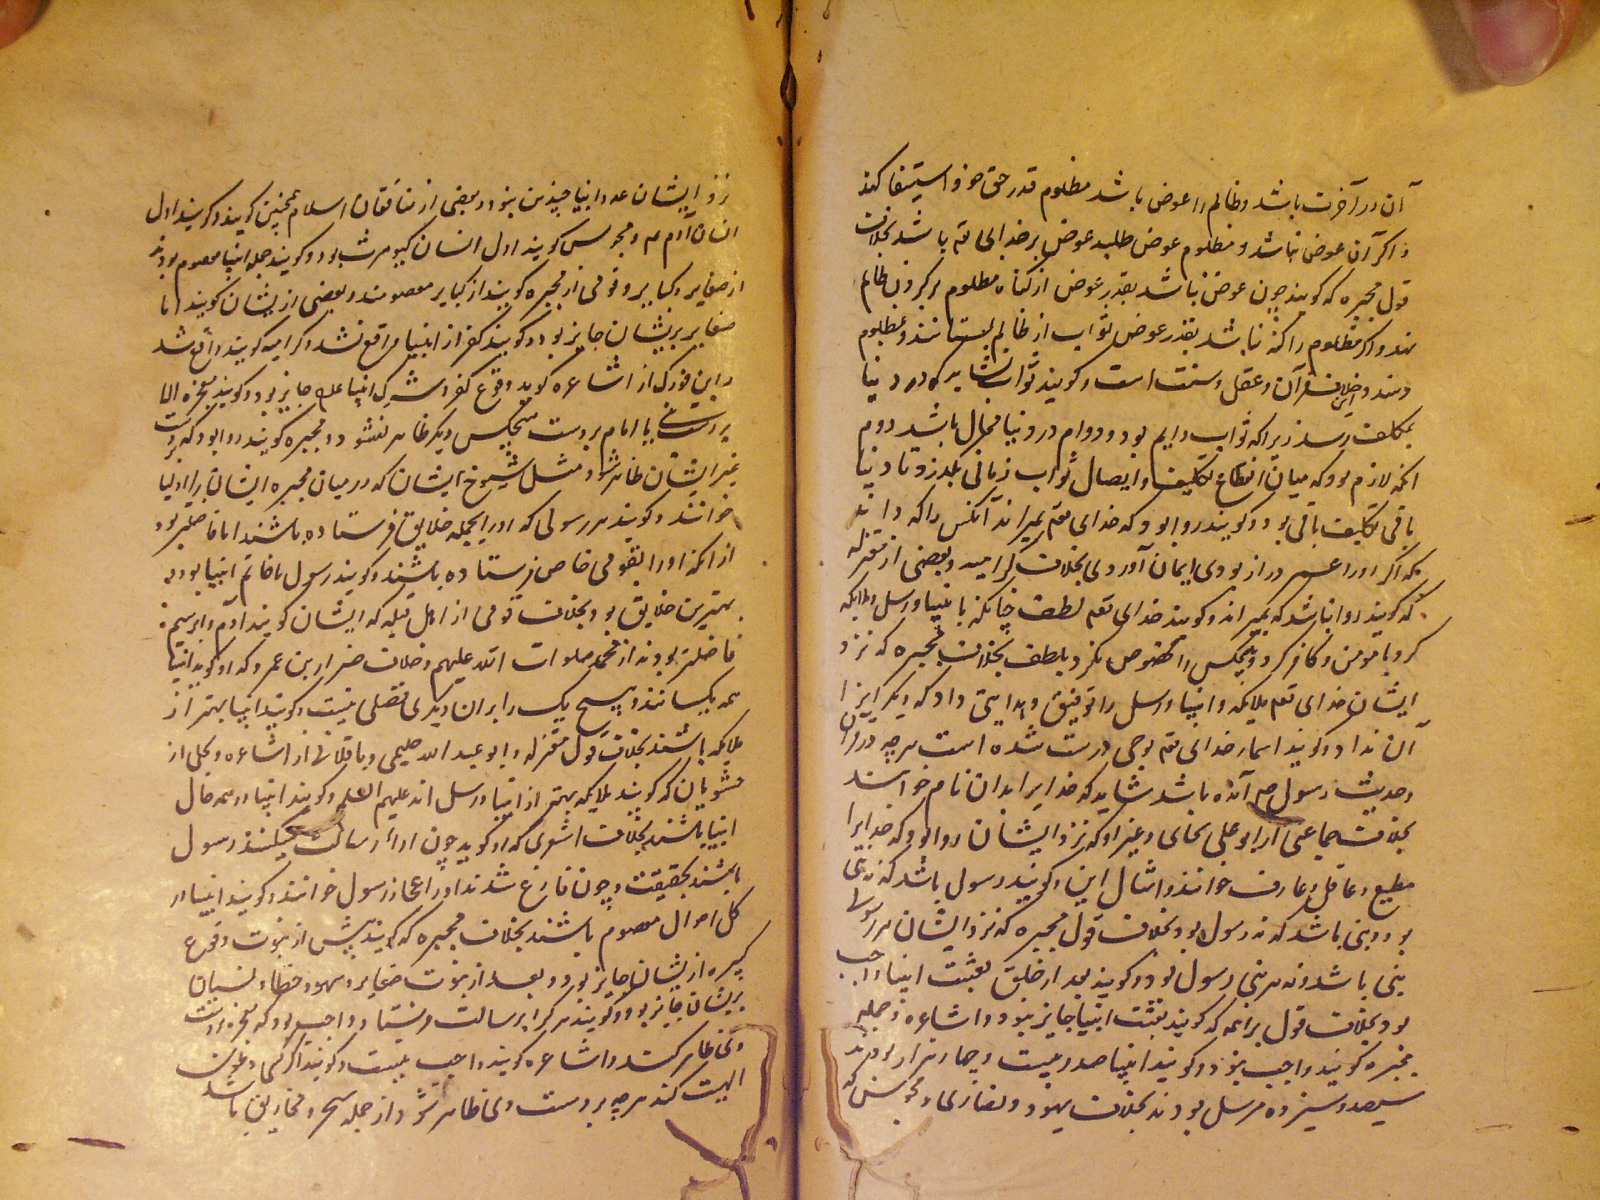 آن در آخرت باشد و ظالم را عوض باشد مظلوم قدر حق خود استیفا کند
و اگر آن عوض نباشد و مظلوم عوض طلبد عوض بر خدای تع باشد بخلاف
قول مجبره که گویند چون عوض نباشد بقدر عوض از گناه مظلوم بر گردن ظالم
نهند و اگر مظلوم را گنه نباشد بقدر عوض ثواب از ظالم بستانند و بمظلوم
دهند و این خلاف قرآن و عقل و سنت است و گویند ثواب نشاید که در دنیا
بمکلف رسد زیرا که ثواب دایم بود و دوام در دنیا محال باشد دوم
آنکه لازم بود که میان انقطاع تکلیف و ایصال ثواب زمانی بگذرد و تا دنیا
باقی تکلیف باقی بود و گویند روا بود که خدای تع بمیراند آنکس را که داند
که اگر او را عمر دراز بودی ایمان آوردی بخلاف کرامیه و بعضی از معتزله
که گویند روا نباشد که بمیراند و گویند خدای تع لطف چنانکه با انبیا و رسل و ملایکه
کرد با مومن و کافر کرد و هیچکس را مخصوص نکرد بلطف بخلاف مجبره که نزد
ایشان خدای تع ملایکه و انبیا و رسل را توفیق و هدایتی داد که دیگرانرا
آن نداد و گویند اسماء خدای تع بوحی درست شده است هر چه در قرآن
و حدیث رسول ص آمده باشد شاید که خدایرا بدان نام خوانند
بخلاف جماعتی از ابو علی جبای و غیر او که نزد ایشان روا بود که خدایرا
مطیع و عاقل و عارف خوانند و امثال این و گویند رسول باشد که نه نبی
بود و نبی باشد که نه رسول بود بخلاف قول مجبره که نزد ایشان هر رسولی
نبی باشد و نه هر نبی رسول بود و گویند بعد از خلق بعثت انبیا واجب
بود بخلاف قول براهمه که گویند بعثت انبیا جایز نبود و اشاعره و جمله
مجبره گویند واجب نبود و گویند انبیا صد و بیست و چهار هزار بودند
سیصد و سیزده مرسل بودند بخلاف یهود و نصاری و مجوس که
نزد ایشان عدد انبیا چندین نبود و بعضی از منافقان اسلام همچنین گویند و گویند اول
انسان آدم بود و مجوس گویند اول انسان کیومرث بود و گویند جمله انبیا معصوم بودند
از صغایر و کبایر و قومی از مجبره گویند از کبایر معصومند و بعضی از ایشان گویند اما
صغایر بر ایشان جایز بود و گویند کفر از انبیا واقع نشد و کرامیه گویند واقع شد
و ابن فورک از اشاعره گوید وقوع کفر و شرک انبیا علیهم جایز بود و گویند معجزه الا
بر دست نبی یا امام بر دست هیچکس دیگر ظاهر نشود و مجبره گویند روا بود که بر دست
غیر ایشان ظاهر شود مثل شیوخ ایشان که در میان مجبره ایشان را اولیا
خوانند و گویند هر رسولی که او را بجمله خلایق فرستاده باشند اما فاضلتر بود
از آنکه او را بقومی خاص فرستاده باشند و گویند رسول ما خاتم انبیا بود و
بهترین خلایق بود بخلاف قومی از اهل قبله که ایشان گویند آدم و ابرهیم
فاضلتر بودند از محمد صلوات الله علیهم و خلاف ضرار بن عمرو که او گوید انبیا
همه یکسانند و هیچ یک را بر آن دیگری فضلی نیست و گویند انبیا بهتر از
ملایکه باشند بخلاف قول معتزله و ابو عبد الله حلیمی و باقلانی از اشاعره و بکلی از
حشویان که گویند ملایکه بهتر از انبیا و رسل اند علیهم السلم و گویند انبیا در همه حال
انبیا باشند بخلاف اشعری که او گوید چون اداء رسالت میکنند رسول
باشند بحقیقت و چون فارغ شدند او را مجاز رسول خوانند و گویند انبیا در
کل احوال معصوم باشند بخلاف مجبره که گویند پیش از نبوت وقوع
کبیره از ایشان جایز بود و بعد از نبوت صغایر و سهو و خطا و نسیان
بر ایشان جایز بود و گویند هر کرا برسالت فرستاد واجب بود که معجزه بر دست
وی ظاهر کند و اشاعره گویند واجب نیست و گویند اگر کسی دعوی
الهیت کند هر چه بر دست وی ظاهر شود از جمله سحر و مخاریق باشد